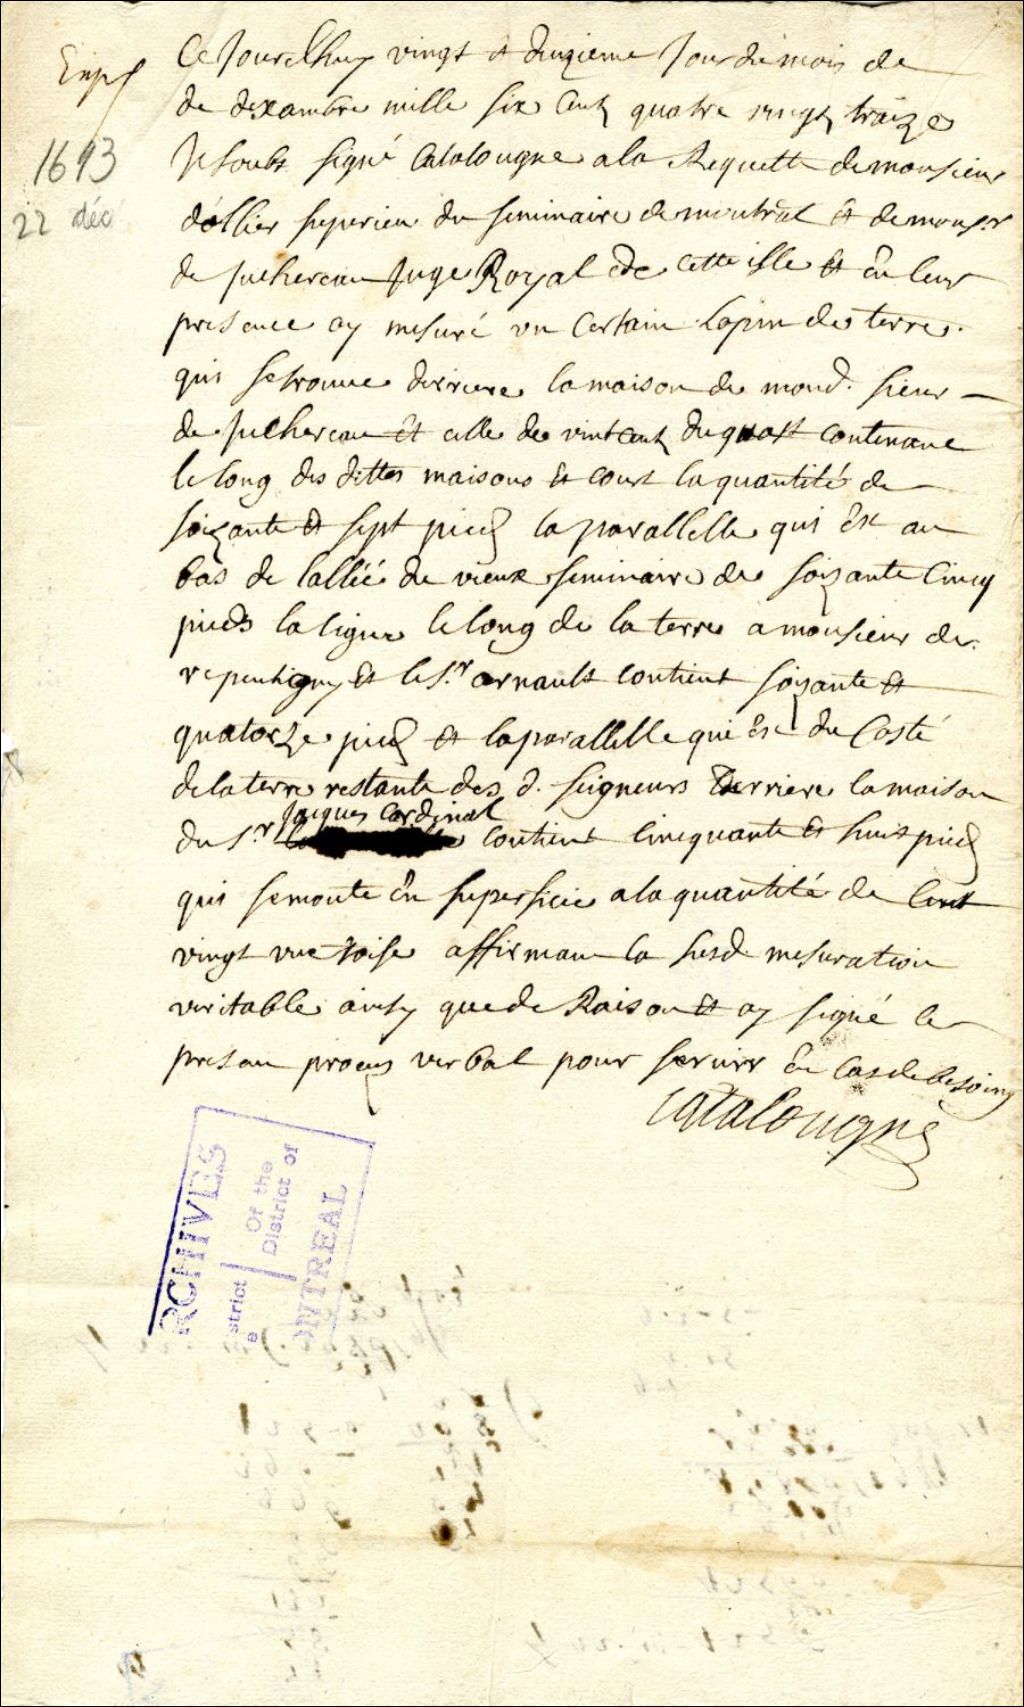 Exp.
1693
22 déc
Ce Jourdhuy vingt et deuzieme Jour du mois de
de desxambre mille six cent quatre vingt traize
Je soubs signé Catalougne a la Requette de monsieur
dollier superieu du seminaire de montral et de monsr
de Juchereau Juge Royal de cette isle et en leur
presence ay mesuré un certain lopin de terre
qui se trouve derriere la maison de mond. sieur
de Juchereau et celle de vintcent dugast contenant
le long des dittes maisons et court la quantité de
soizante et sept pied la parallelle qui est au
bas de lallée du vieux seminaire de soizante cincq
pieds la ligne le long de la terre a monsieur de
repentigny et le sr arnault contient soizante et
quatorze pied et la parallelle qui est du costé
de la terre restante des d. seigneurs derriere la maison
Jacques cardinal
du sr contient cincquante et huit pied
qui se monte en superficie a la quantité de cent
vingt une toise affirmant la susd mesuration
veritable ainsy que de Raison et ay signé le
presan proces verbal pour servir en cas de besoing
Catalougne
RCHIVES
Of the
strict District of
e
ONTREAL